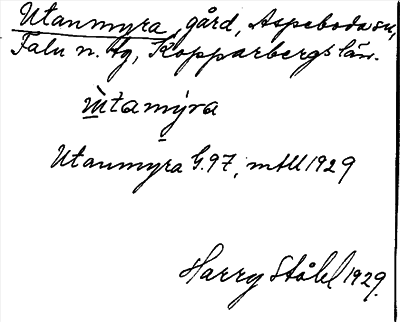 Utanmyra, gård, Aspeboda sn,
Falu n. tg, Kopparbergs län.
ùtamýra
Utanmyra G.97, mtll 1929
Harry Ståhl 1929.